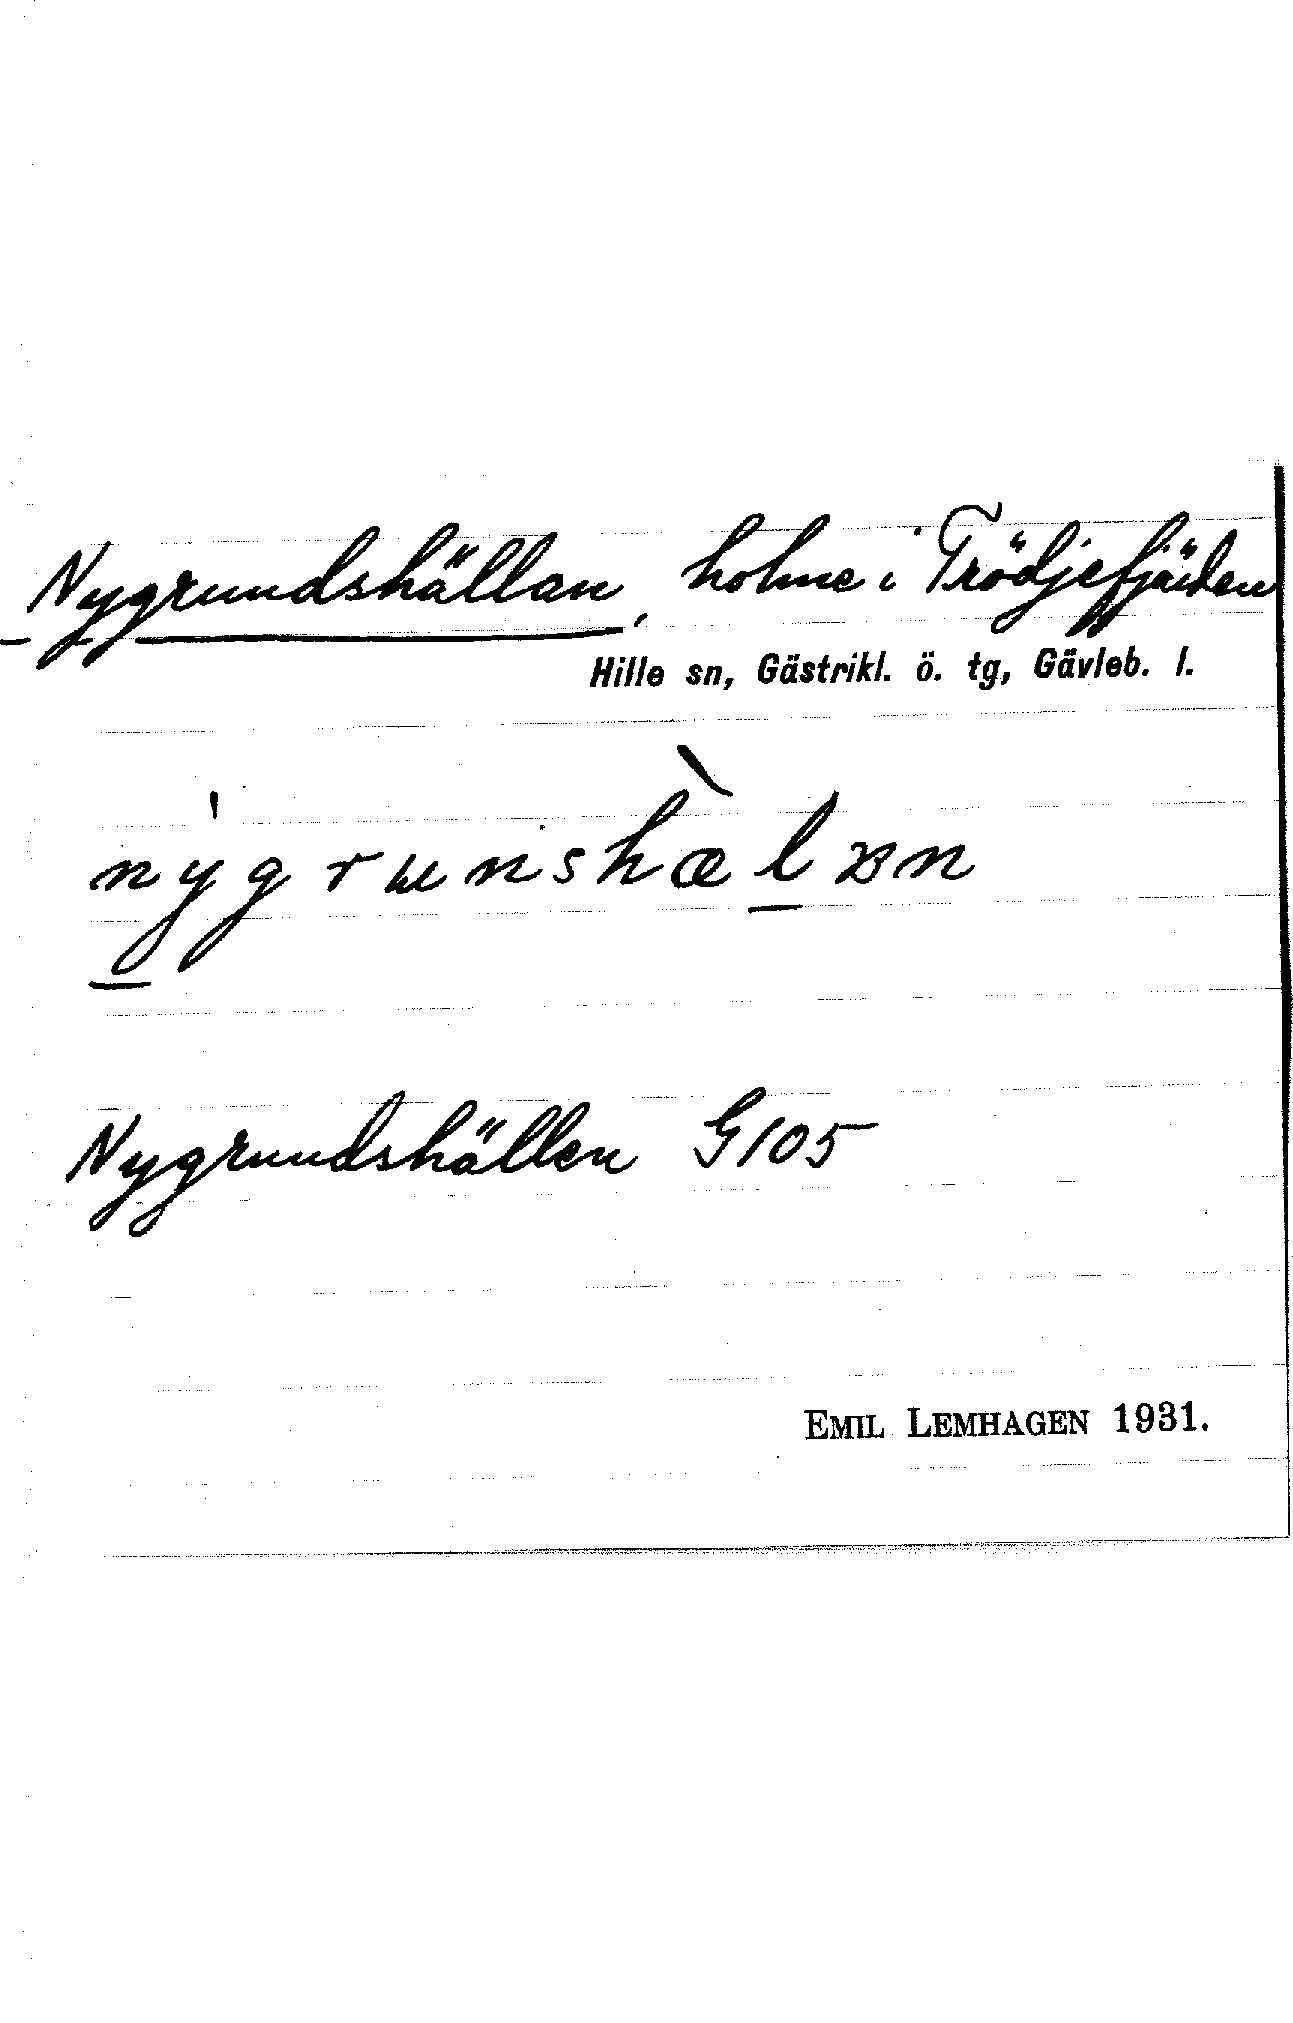 Nygrundshällan, holme i Trödjefjärden
Hille sn, Gästrikl. ö. tg, Gävleb. l.
Nygrundshällen G105
EMIL LEMHAGEN 1931.